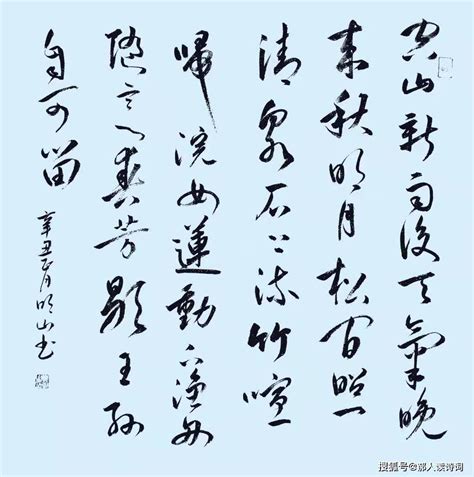 空山新雨後天氣晚
来秋明月松间照
清泉石上流竹喧
歸浣女蓮動下漁舟
随意春芳歇王孙
自可留
辛丑正月明山书
搜狐号@人诗词